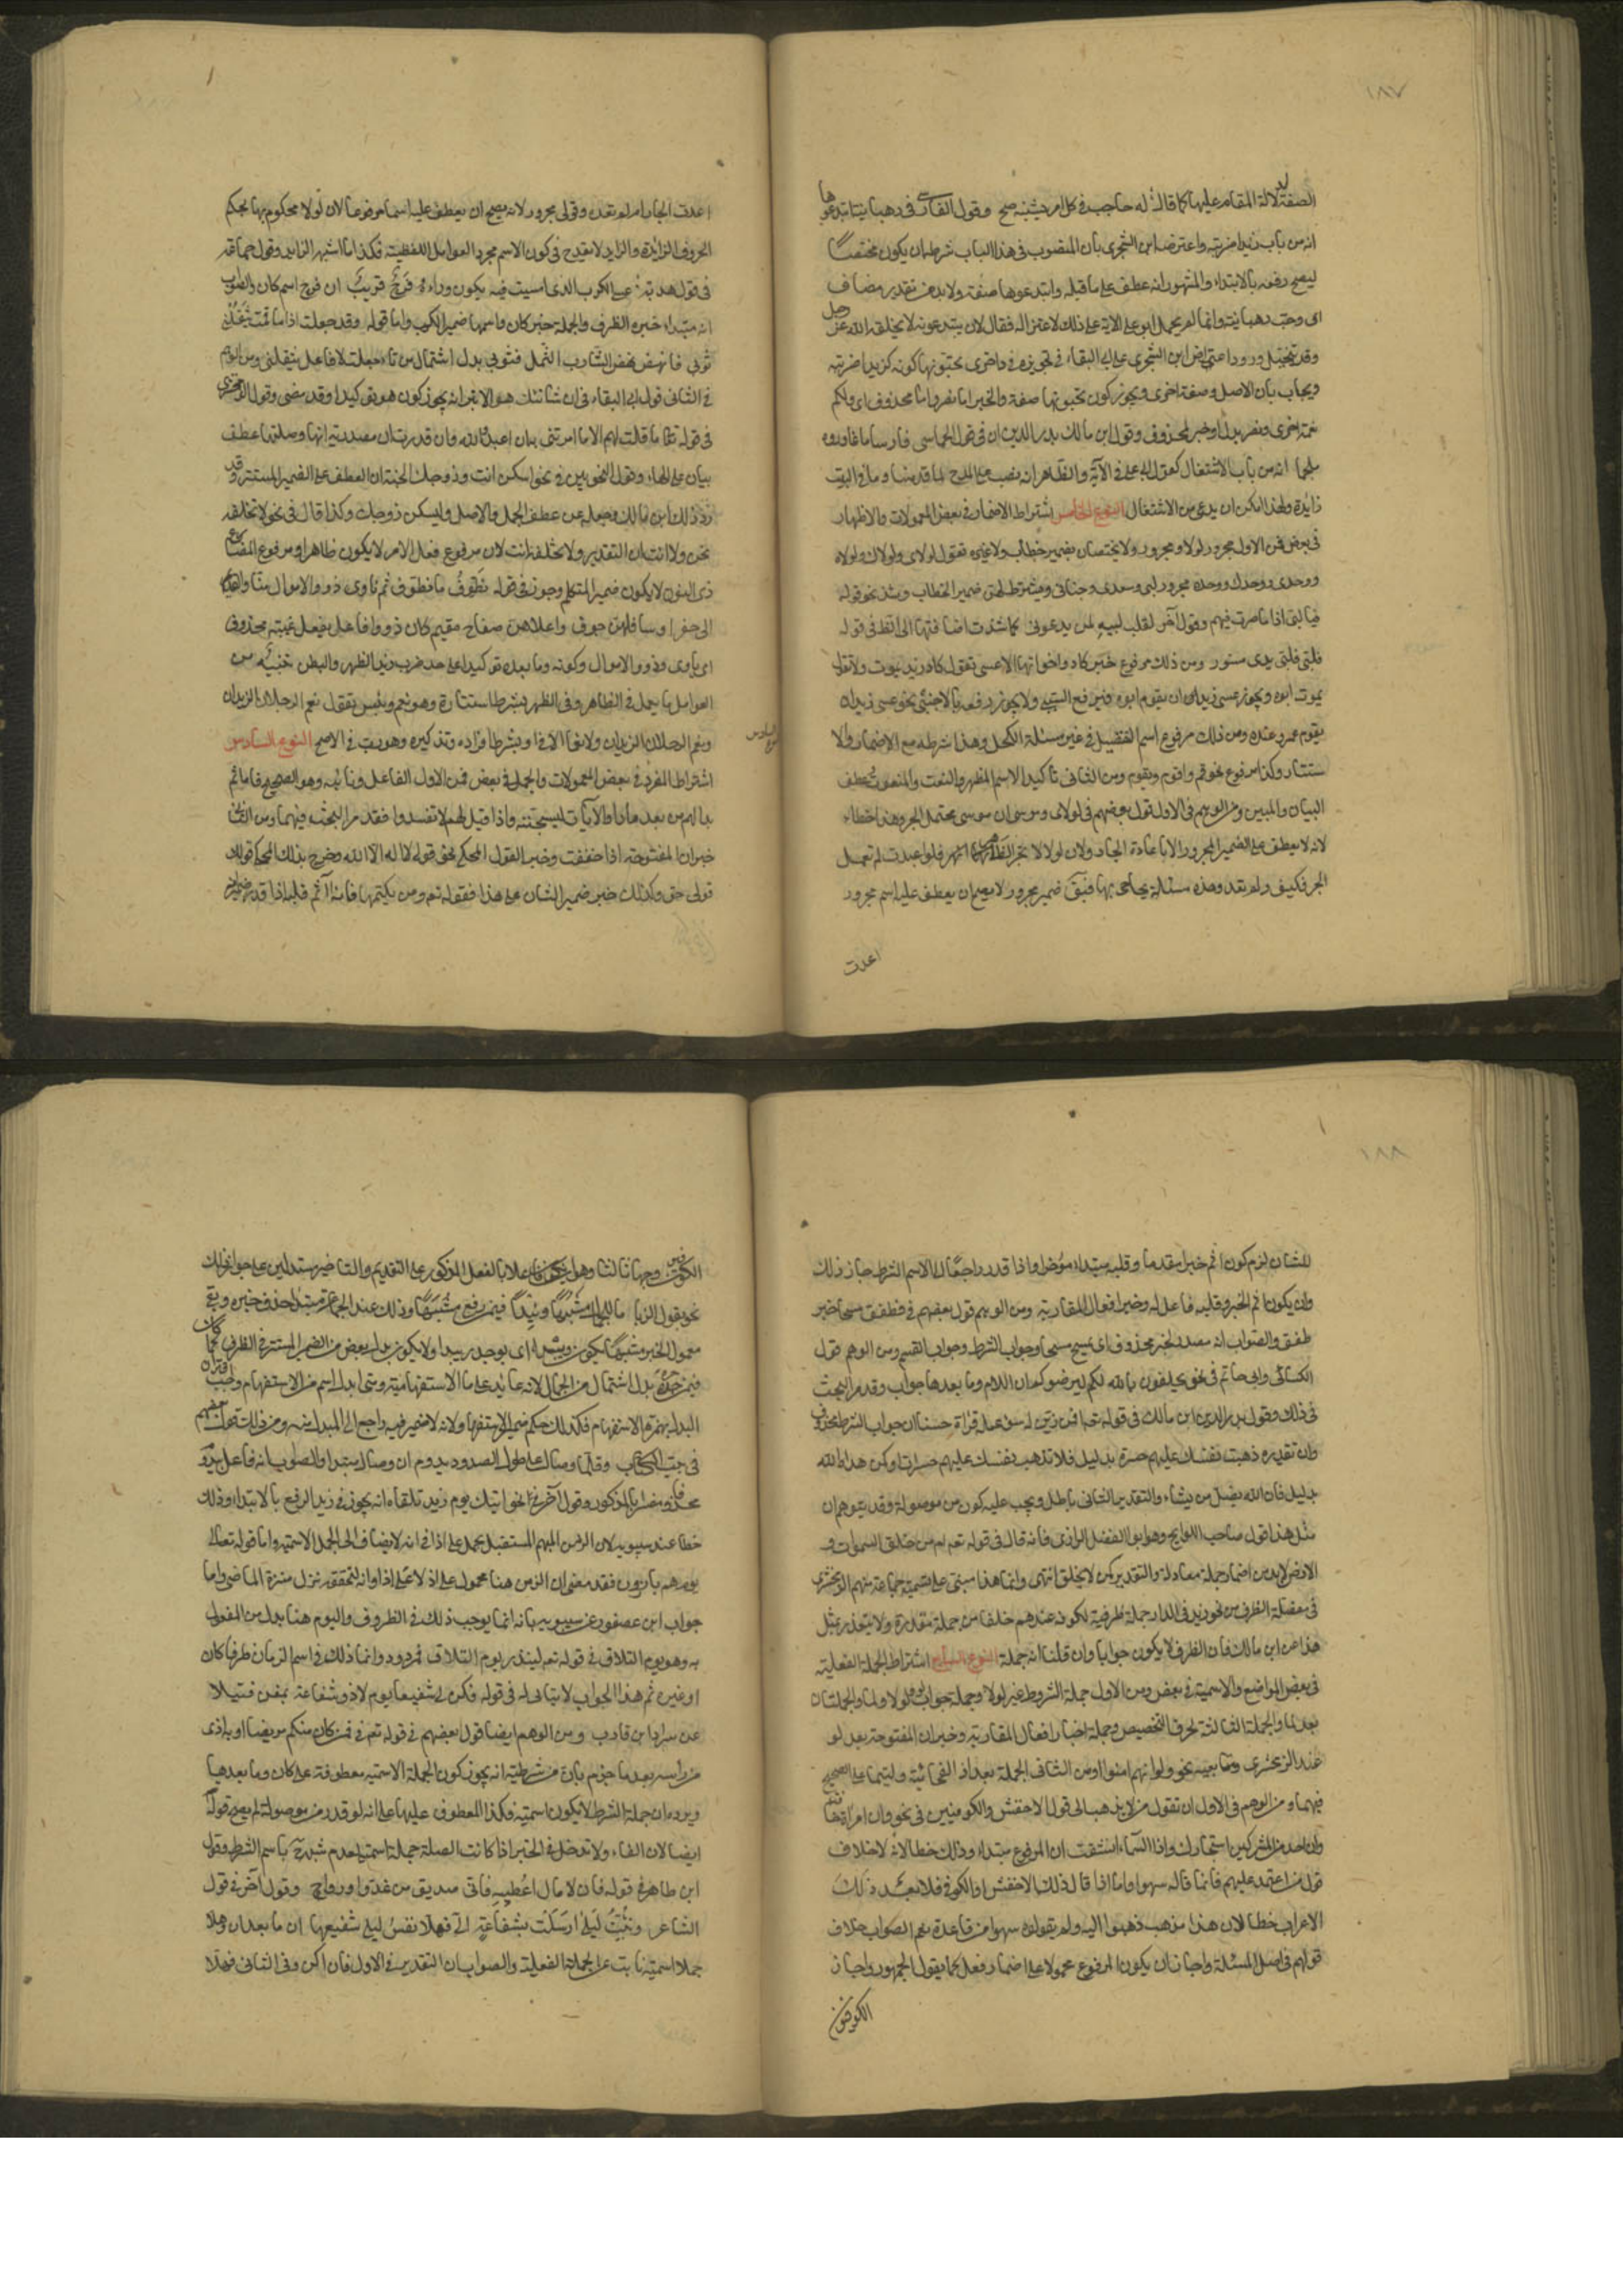 ١٨٧
الصفة لدلالة المقام عليها كما قال له حاجب في كل امر يشينه صح وقول الفارسي في ورهبانية ابتدعوها
انه من باب زيدا ضربته واعترضه ابن الشجري بان المنصوب في هذا الباب شرطه ان يكون مختصا
ليصح رفعه بالابتداء والمشهور انه عطف على ما قبله وابتدعوها صفة ولابد من تقدير مضاف
اى وحب رهبانية وانما لم يحمل ابو على الاية على ذلك لاعتزاله فقال لان ما يبتدعونه لا يخلقه الله عز وجل
وقد يتخيل ورود اعتراض ابن الشجري على ابي البقاء في تجويزه في واخرى تحبونها كونه كزيدا ضربته
ويجاب بان الاصل وصفة اخرى ويجوز كون تحبونها صفة والخبر اما نصر واما محذوف اى ولكم
نعمة اخرى ونصر بدل او خبر لمحذوف وقول ابن مالك بدر الدين ان في قول الحماسي فارسا ما غادروه
ملحما انه من باب الاشتغال كقول ابي على في الآية والظاهر انه نصب على المدح لما قدمنا وما في البيت
زايدة ولهذا امكن ان يدعى من الاشتغال النوع الخامس اشتراط الاضمار في بعض المعمولات والاظهار
في بعض فمن الاول مجرور لولا ومجرور وحد ولا يختصان بضمير خطاب ولا غيره تقول لولاى ولولاك ولولاه
ووحدى ووحدك ووحده مجرور لبى وسعدى وحنانى ويشترط لهن ضمير الخطاب وشذ نحو قوله
فيا لبى اذا ما صرت فيهم وقول آخر لقلت لبيه لمن يدعونى كما شذت اضافتها الى الظاهر في قوله
فلبى فلبى يدى مسور ومن ذلك مرفوع خبر كاد واخواتها الا عسى تقول كاد زيد يموت ولا تقل
يموت ابوه ويجوز عسى زيد ان يقوم ابوه فيرفع السببي ولا يجوز رفعه بالاجنبي نحو عسى زيد ان
يقوم عمرو عنده ومن ذلك مرفوع اسم التفضيل في غير مسئلة الكحل وهذا شرطه مع الاضمار الا
ستتار وكذا مرفوع نحو قم واقوم ونقوم ومن الثانى تاكيد الاسم المظهر والنعت والمنعوت وعطف
البيان والمبين ومن الوهم في الاول قول بعضهم في لولاى وموسى ان موسى يحتمل الجر وهذا خطاء
لانه لا يعطف على الضمير المجرور الا باعادة الجار ولان لولا لا تجر الظاهر فلو اعيدت لم تعمل
الجر فكيف ولم تعد وهذه مسئلة يحاجى بها فيقال ضمير مجرور لا يصح ان يعطف عليه اسم مجرور
اعدت
اعدت الجار ام لم تعده وقولى مجرور لانه يصح ان يعطف عليه اسما مرفوعا لان لولا محكوم بها بحكم
الحروف الزائدة والزايد لا يقدح في كون الاسم مجردا من العوامل اللفظية فكذا ما اشبه الزايد وقول جماعة
في قول هدبة عسى الكرب الذى امسيت فيه يكون وراءه فرج قريب ان فرج اسم كان والصواب
انه مبتداء خبره الظرف والجملة خبر كان واسمها ضمير الكرب واما قوله وقد جعلت اذا ما قمت يثقلنى
ثوبى فانهض نهض الشارب الثمل فثوبى بدل اشتمال من تاء جعلت لا فاعل يثقلنى ومن الوهم
في الثانى قول ابي البقاء في ان شانئك هو الابتر انه يجوز كون هو توكيدا وقد مضى وقول الزمخشرى
في قوله تعالى ما قلت لهم الا ما امرتنى به ان اعبدوا الله وان قدرت ان مصدرية انها وصلتها عطف
بيان على الهاء وقول النحويين في نحو اسكن انت وزوجك الجنة ان العطف على الضمير المستتر وقد
رد ذلك ابن مالك وجعله من عطف الجمل والاصل وليسكن زوجك وكذا قال في نحو لا نخلفه
نحن ولا انت ان التقدير ولا تخلفه انت لان مرفوع فعل الامر لا يكون ظاهرا ومرفوع المضارع
ذى النون لا يكون غير ضمير المتكلم وجوز في قوله نطوف ما نطوف ثم ناوى ذووا الاموال منا والعديم
الى حفر اسافلهن جوف واعلاهن صفاح مقيم كان ذووا فاعلا بفعل غيبة محذوف
اى ياوى ذوو الاموال وكونه وما بعده توكيدا على حد ضرب زيد الظهر والبطن تنبيه من
العوامل ما يعمل في الظاهر وفي المظهر بشرط استتاره وهو نعم وبئس تقول نعم الرجلان الزيدان
ونعم رجلين الزيدان ولا يقال الا ذا وبشرط افراده وتذكيره وهو رب في الاصح النوع السادس
النوع السادس
اشتراط المفرد في بعض المعمولات والجملة في بعض فمن الاول الفاعل ونائبه وهو الصحيح فاما ثم
بدا لهم من بعد ما راوا الآيات ليسجننه واذا قيل لهم لا تفسدوا فقد مر البحث فيهما ومن الثانى
خبر ان المفتوحة اذا خففت وخبر القول المحكي نحو قوله لا اله الا الله وخرج بذلك المحكي قولك
قولى حق وكذلك خبر ضمير الشان وعلى هذا فقوله تعالى ومن يكتمها فانه آثم قلبه اذا قدر ضمير انه
١٨٨
للشان لزم كون آثم خبرا مقدما وقلبه مبتداء مؤخرا واذا قدر راجعا الى الاسم الشرط جاز ذلك
وان يكون آثم الخبر وقلبه فاعل له وخبر افعال المقاربة ومن الوهم قول بعضهم في فطفق مسحا خبر
طفق والصواب انه مصدر لخبر محذوف اى يمسح مسحا وجواب الشرط وجواب القسم ومن الوهم قول
الكسائى وابي حاتم في نحو يحلفون بالله لكم ليرضوكم ان اللام وما بعدها جواب وقد مر البحث
في ذلك وقول بدر الدين ابن مالك في قوله تعالى افمن زين له سوء عمله فرآه حسنا ان جواب الشرط محذوف
وان تقديره ذهبت نفسك عليهم حسرة بدليل فلا تذهب نفسك عليهم حسرات او كمن هداه الله
بدليل فان الله يضل من يشاء والتقدير الثانى باطل ويجب عليه كون من موصولة وقد يتوهم ان
مثل هذا قول صاحب اللوايح وهو ابو الفضل الرازى فانه قال في قوله تعالى امن خلق السموات و
الارض لابد من اضمار جملة معادلة والتقدير كمن لا يخلق انتهى وانما هذا مبنى على تسمية جماعة منهم الزمخشرى
في مفصله الظرف من نحو زيد في الدار جملة ظرفية لكونه عندهم خلفا من جملة مقدرة ولا يعتذر بمثل
هذا عن ابن مالك فان الظرف لا يكون جوابا وان قلنا انه جملة النوع السابع اشتراط الجملة الفعلية
في بعض المواضع والاسمية في بعض ومن الاول جملة الشرط غير لولا وجملة جواب لو ولولا ولوما والجملتان
بعد لما والجملة التالية لحرف التحضيض وجملة اخبار افعال المقاربة وخبر ان المفتوحة بعد لو
عند الزمخشرى ومتابعيه نحو ولو انهم امنوا ومن الثانى الجملة بعد اذا الفجائية وليتما على الصحيح
فيهما ومن الوهم في الاول ان تقول من لا يذهب الى قول الاخفش والكوفيين في نحو وان امراة خافت
وان احد من المشركين استجارك واذا السماء انشقت ان المرفوع مبتداء وذلك خطا لانه لاختلاف
قول من اعتمد عليهم فانما قاله سهوا واما اذا قال ذلك الاخفش او الكوفي فلا يعد ذلك
الاعراب خطا لان هذا مذهب ذهبوا اليه ولم يقولوه سهوا من قاعدة نعم الصواب خلاف
قولهم في اصل المسئلة واجازوا ان يكون المرفوع محمولا على اضمار فعل كما يقول الجمهور واجاز
الكوفيون
الكوفيون وجها ثالثا وهو ان يكون فاعلا بالفعل المذكور على التقديم والتاخير مستدلين على جواز ذلك
نحو بقول الزبا ما للجمال مشيها وئيدا فيمن رفع مشيها وذلك عند الجماعة مبتدا حذف خبره وبقى
معمول الخبر مشيها يكون وئيدا اى يوجد وئيدا ولا يكون بدل بعض من الضمير المستتر في الظرف كما كان
فيمن جره بدل اشتمال من الجمال لانه عايد على ما الاستفهامية ومتى ابدل اسم من الاستفهام وجب اقتران
البدل بهمزة الاستفهام فكذلك حكم ضمير الاستفهام ولانه لا ضمير فيه راجع الى المبدل منه ومن ذلك قول بعضهم
في بيت الكتاب وقلما وصال على طول الصدود يدوم ان وصال مبتدا والصواب انه فاعل بيدوم
محذوفا مفسرا بالمذكور وقول آخر في نحو آتيك يوم زيد تلقاه انه يجوز في زيد الرفع بالابتداء وذلك
خطا عند سيبويه لان الزمن المبهم المستقبل يحمل على اذا في انه لا يضاف الى الجمل الاسمية واما قوله تعالى
يوم هم بارزون فقد مضى ان الزمن هنا محمول على اذ لا على اذا وانه لتحققه نزل منزلة الماضى واما
جواب ابن عصفور عن سيبويه بانه انما يوجب ذلك في الظروف واليوم هنا بدل من المفعول
به وهو يوم التلاق في قوله تعالى لينذر يوم التلاق فمردود وانما ذلك في اسم الزمان ظرفا كان
او غيره ثم هذا الجواب لا يتاتى له في قوله فكن لى شفيعا يوم لا ذو شفاعة بمغن فتيلا
عن سواد بن قارب ومن الوهم ايضا قول بعضهم في قوله تعالى فمن كان منكم مريضا او به اذى
من راسه بعد ما جزم بان من شرطية انه يجوز كون الجملة الاسمية معطوفة على كان وما بعدها
ويرده ان جملة الشرط لا يكون اسمية فكذا المعطوف عليها على انه لو قدر من موصولة لم يصح قوله
ايضا لان الفاء لا تدخل في الخبر اذا كانت الصلة جملة اسمية لعدم شبهه باسم الشرط وقول
ابن طاهر في قوله فان لا مال اعطيه فانى صديق من غدو او رواح وقول آخر في قول
الشاعر ونبئت ليلى ارسلت بشفاعة الى فهلا نفس ليلى شفيعها ان ما بعد ان وهلا
جملا اسمية نابت عن الجملة الفعلية والصواب ان التقدير في الاول فان اكن وفي الثانى فهلا